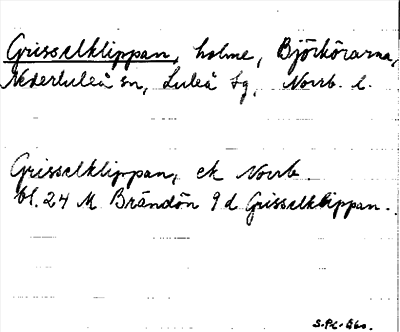 Grisselklippan, holme, Björkörarna,
Nederluleå sn, Luleå tg, Norrb. l.
Grisselklippan, ek Norrb.
bl. 24 M Brändön 9 d Grisselklippan.